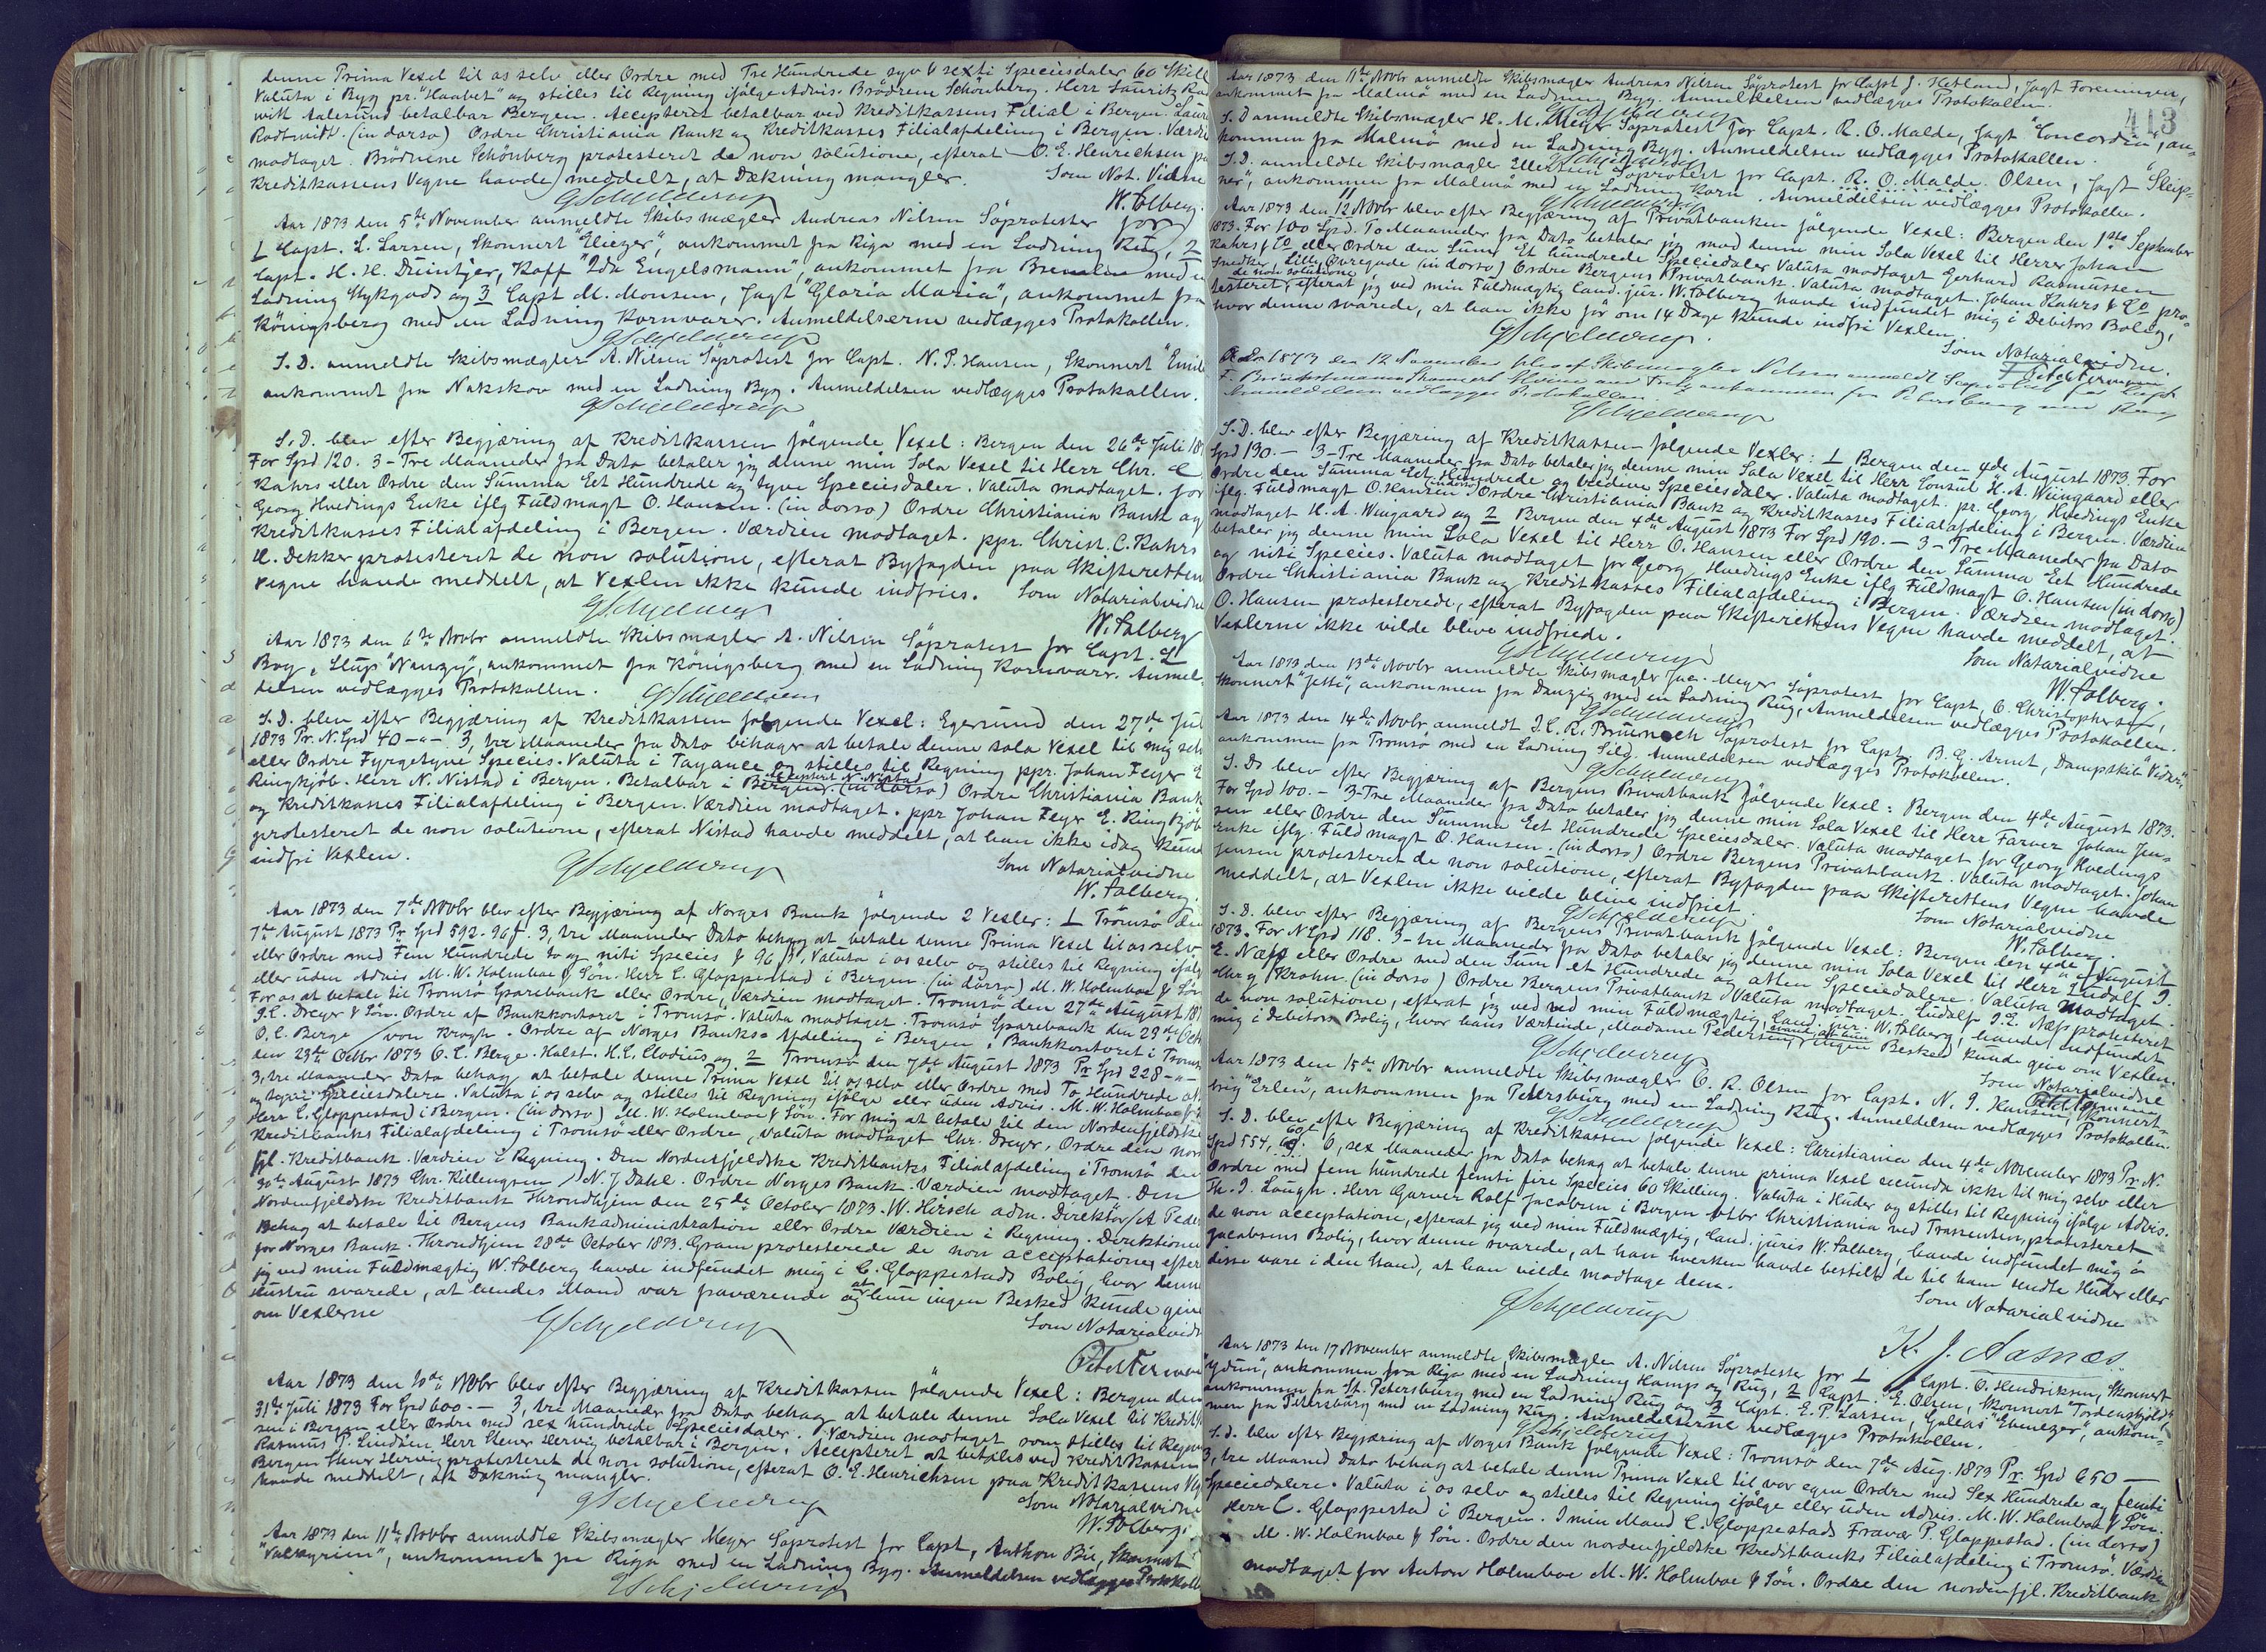 denne Prima Vexel til os selv eller Ordre med Tre Hundrede syv & sexti Speciesdaler 60 Skill
Valuta i Byg pr. "Haabet" og stilles til Regning ifølge Advis. Brödrene Schönberg. Herr Lauritz
Aalesund betalbar Bergen. Accepteret betalbar ved Kreditkassens Filial i Bergen.
(in dorso) Ordre Christiania Bank og Kreditkasses Filialafdeling i Bergen. Værdi
modtaget. Brödrene Schönberg protesteret de non solutione, efterat O. E. Henrichsen pa
Kreditkassens Vegne havde meddelt, at Dækning mangler. Som Not. Vidne
GSchjelderup W. Falberg.
Aar 1873 den 5te November anmeldte Skibsmægler Andreas Nilsen Söprotester for
1 Capt. L. Larsen, Skonnert "Eliezer", ankommet fra Riga med en Ladning Rug, 2
Capt. H. H. Duintjer, Koff "Ida Engelsmann", ankommet fra Bremen med en
Ladning Stykgods og 3 Capt M. Monsen, Jagt "Gloria Maria", ankommet fra
Königsberg med en Ladning Kornvarer. Anmeldelserne vedlægges Protokollen.
GSchjelderup
S. D. anmeldte Skibsmægler A. Nilsen Söprotest for Capt. N. P. Hansen, Skonnert "Emil
ankommet fra Nakskov med en Ladning Byg. Anmeldelsen vedlægges Protokollen.
GSchjelderup
S. D. blev efter Begjæring af Kreditkassen følgende Vexel: Bergen den 26de Juli 18
For Spd 120. 3-Tre Maaneder fra Dato betaler jeg denne min Sola Vexel til Herr Chr. C
Kahrs eller Ordre den Summa Eet Hundrede og tyve Speciesdaler. Valuta modtaget. for
Georg Hvedings Enke iflg Fuldmagt O. Hansen. (in dorso) Ordre Christiania Bank og
Kreditkasses Filialafdeling i Bergen. Værdien modtaget. ppr. Christ. C. Kahrs
H. Dekker protesteret de non solutione, efterat Byfogden paa Skifteretten
Vegne havde meddelt, at Vexlen ikke kunde indfries. Som Notarialvidne
GSchjelderup W. Falberg
Aar 1873 den 6te Novbr anmeldte Skibsmægler A. Nilsen Söprotest for Capt. L
Boy, Slup "Nanzy", ankommet fra Königsberg med en Ladning Kornvarer. Anmel-
delsen vedlægges Protokollen. GSchjelderup
S. D. blev efter Begjæring af Kreditkassen følgende Vexel: Egersund den 27de Jul
1873 Pr. N. Spd 40-"-. 3, tre Maaneder fra Dato behager at betale denne sola Vexel til mig selv
eller Ordre Fyrgetyve Species. Valuta i Fayance og stilles til Regning ppr. Johan Feyer E
Ringkjöb. Herr N. Nistad i Bergen. Betalbar i Bergen. Accepteret N. Nistad (in dorso) Ordre Christiania Bank
og Kreditkasses Filialafdeling i Bergen. Værdien modtaget. ppr Johan Feyr E. Ringkjöb
protesteret de non solutione, efterat Nistad havde meddelt, at han ikke idag kunde
indfri Vexlen. Som Notarialvidne
GSchjelderup W. Falberg.
Aar 1873 den 7de Novbr blev efter Begjæring af Norges Bank følgende 2 Vexler: 1 Tromsö den
7de August 1873 Pr Spd 592. 96 ſ. 3, tre Maaneder Dato behag at betale denne Prima Vexel til os selv
eller Ordre med Fem Hundrede to og niti Species & 96 ſ, Valuta i os selv og stilles til Regning ifølg
eller uden Advis M. W. Holmboe & Sön. Herr C. Gloppestad i Bergen. (in dorso) M. W. Holmboe & Sön
For os at betale til Tromsö Sparebank eller Ordre, Værdien modtaget. Tromsö den 27de August 187
J. C. Dreyer & Sön. Ordre af Bankkontoret i Tromsö. Valuta modtaget. Tromsö Sparebank den 23de Oct
O. C. Berge / von Krogh. Ordre af Norges Banks Afdeling i Bergen. Bankkontoret i Troms
den 23de Octbr 1873 O. C. Berge. Halst. H. C. Clodius og 2 Tromsö den 7de August 1873 Pr Spd 228-"-
3, tre Maaneder Dato behag at betale denne Prima Vexel til os selv eller Ordre med To Hundrede ot
og tyve Speciesdalere. Valuta i os selv og stilles til Regning ifølge eller uden Advis. M. W. Holmboe & Sön
Herr C. Gloppestad i Bergen. (in dorso) M. W. Holmboe & Sön. For mig at betale til den Nordenfjeldske
Kreditbanks Filialafdeling i Tromsö eller Ordre, Valuta modtaget Chr. Dreyer. Ordre den nor
fjl. Kreditbank. Værdien i Regning. Den Nordenfjeldske Kreditbanks Filialafdeling i Tromsö den
30te August 1873 Chr. Killengren / N. J Dahl. Ordre Norges Bank. Værdien modtaget. Den
Nordenfjeldske Kreditbank Throndhjem den 25de October 1873. W. Hirsch adm. Direktör / A Peder
Behag at betale til Bergens Bankadministration eller Ordre Værdien i Regning. Direktionen
for Norges Bank. Throndhjem 28de October 1873. Gram protesterede de non acceptatione, efter
jeg ved min Fuldmægtig W. Falberg havde indfundet mig i C. Gloppestads Bolig, hvor denne
Hustru svarede, at hendes Mand var fraværende og at hun ingen Besked kunde give
om Vexlerne Som Notarialvidn
GSchjelderup
Aar 1873 den 10de Novbr blev efter Begjæring af Kreditkassen følgende Vexel: Bergen den
31te Juli 1873 For Spd 600.- 3, tre Maaneder fra Dato behag at betale denne Sola Vexel til Kreditk
sen i Bergen eller Ordre med sex hundrede Speciesdaler. Værdien modtaget som stilles til Regning
Rasmus P. Lindöen, Herr Stener Hervig betalbar i Bergen. Accepteret at betales ved Kreditkassen
Bergen Stener Hervig protesteret de non solutione, efterat O. E. Henrichsen paa Kreditkassens Veg
havde meddelt, at Dækning mangler. Som Notarialvidne
GSchjelderup W. Falberg.
Aar 1873 den 11te Novbr anmeldte Skibsmægler Meyer Söprotest for Capt, Anthon Bü, Skonnert
"Valkyrien", ankommet fra Riga med en Ladning Byg. Anmeldelsen vedlægges Protokoll
GSchjelderup
413
Aar 1873 den 11te Novbr anmeldte Skibsmægler Andreas Nilsen Söprotest for Capt J. Hetland, Jagt Foreningen,
ankommet fra Malmö med en Ladning Byg. Anmeldelsen vedlægges Protokollen.
GSchjelderup
S. D anmeldte Skibsmægler H. M. Meyer Söprotest for Capt. R. O. Malde, Jagt "Concordia", an-
kommen fra Malmö med en Ladning Byg. Anmeldelsen vedlægges Protokollen.
GSchjelderup
S. D. anmeldte Skibsmægler Ellertsen Söprotest for Capt. R. O. Malde. Olsen, Jagt "Sleip-
ner", ankommen fra Malmö med en Ladning Korn. Anmeldelsen vedlægges Protokollen.
GSchjelderup
Aar 1873 den 12 Novbr blev efter Begjæring af Privatbanken følgende Vexel: Bergen den 1ste September
1873. For 100 Spd. To Maaneder fra Dato betaler jeg mod denne min Sola Vexel til Herrer Johan
Kahrs & Co eller Ordre den Sum Et hundrede Speciedaler Valuta modtaget Gerhard Rasmussen
Snedker, Lille Övregade (in dorso) Ordre Bergens Privatbank. Valuta modtaget. Johan Kahrs & Co pro-
testeret de non solutione, efterat jeg ved min Fuldmægtig Cand. jur. W. Falberg havde indfundet mig i Debitors Bolig,
hvor denne svarede, at han ikke för om 14 Dage kunde indfri Vexlen.
GSchjelderup. Som Notarialvidne.
Aar 1873 den 12 November blev af Skibsmægler Nilsen anmeldt Søprotest for Capt
ankommen fra Petersburg med Rug
Anmeldelsen vedlægges Protokollen.
GSchjelderup
S. D. blev efter Begjæring af Kreditkassen følgende Vexler: 1 Bergen den 4de August 1873. For
Spd 130.- 3-Tre Maaneder fra Dato betaler jeg denne min Sola Vexel til Herr Consul H. A. Wiingaard eller
Ordre den Summa Eet Hundrede og tredive Speciesdaler. Valuta modtaget. pr. Georg Hvedings Enke
iflg. Fuldmagt O. Hansen (in dorso) Ordre Christiania Bank og Kreditkasses Filialafdeling i Bergen. Værdien
modtaget H. A. Wingaard og 2 Bergen den 4de August 1873 For Spd 190.- 3-Tre Maaneder fra Dato
betaler jeg denne min Sola Vexel til Herr O. Hansen eller Ordre den Summa Eet Hundrede
og niti Species. Valuta modtaget for Georg Hvedings Enke iflg Fuldmagt O. Hansen (in dorso)
Ordre Christiania Bank og Kreditkasses Filialafdeling i Bergen. Værdien modtaget.
O. Hansen protesterede, efterat Byfogden paa Skifterettens Vegne havde meddelt, at
Vexlerne ikke vilde blive indfriede. Som Notarialvidne
GSchjelderup W. Falberg.
Aar 1873 den 13de Novbr anmeldte Skibsmægler Jac. Meyer Söprotest for Capt. C. Christophersen,
Skonnert "Jette", ankommen fra Danzig med en Ladning Rug, Anmeldelsen vedlægges Protokollen.
GSchjelderup
Aar 1873 den 14de Novbr anmeldt J. C. R. Brunsch Söprotest for Capt. B. G. Arnet, Dampskib "Vidar",
ankommen fra Tromsö med en Ladning Sild. Anmeldelsen vedlægges Protokollen.
GSchjelderup
S. D. blev efter Begjæring af Bergens Privatbank følgende Vexel: Bergen den 4de August 1873.
For Spd 100.- 3-Tre Maaneder fra Dato betaler jeg denne min Sola Vexel til Herr Farver Johan Jen-
sen eller Ordre den Summa Eet Hundrede Speciesdaler. Valuta modtaget for Georg Hvedings
Enke iflg. Fuldmagt O. Hansen. (in dorso) Ordre Bergens Privatbank. Valuta modtaget. Johan
Jensen protesteret de non solutione, efterat Byfogden paa Skifterettens Vegne havde
meddelt, at Vexlen ikke vilde blive indfriet. Som Notarialvidne
GSchjelderup W. Falberg.
S. D. blev efter Begjæring af Bergens Privatbank følgende Vexel: Bergen den 4de August
1873. For N Spd 118. 3-tre Maaneder fra Dato betaler jeg denne min Sola Vexel til Herr Ludolf J.
E. Næss eller Ordre med den Sum et Hundrede og atten Speciedalere. Valuta modtaget.
Chr. g Krohn. (in dorso) Ordre Bergens Privatbank Valuta modtaget. Ludolf J. E. Næss protesteret
de non solutione, efterat jeg ved min Fuldmægtig, Cand. jur. W. Falberg, havde indfundet
mig i Debitors Bolig, hvor hans Værtinde, Madame Pedersen, svarede, at hun ingen Besked kunde give om Vexlen.
GSchjelderup Som Notarialvidne
Aar 1873 den 15de Novbr anmeldte Skibsmægler C. R. Olsen for Capt. N. J. Hansen, Skonnert-
brig "Erlen", ankommen fra Petersburg med en Ladning Rug. Anmeldelsen vedlægges Protokollen.
GSchjelderup
S. D. blev efter Begjæring af Kreditkassen følgende Vexel: Christiania den 4de November 1873 Pr. N.
Spd 554, 60 ſ. 6, sex Maaneder fra Dato behag at betale denne prima Vexel secunda ikke til mig selv eller
Ordre med fem hundrede femti fire Species 60 Skilling. Valuta i Huder og stilles til Regning ifølge Advis.
Th. J. Laugh. Herr Garver Rolf Jacobsen i Bergen Christiania ved Trassenten, protesteret
de non acceptatione, efterat jeg ved min Fuldmægtig, Cand. juris W. Falberg, havde indfundet mig i
Jacobsens Bolig, hvor denne svarede, at han hverken havde bestilt de til ham sendte Huder eller
disse vare i den Stand, at han vilde modtage dem.
GSchjelderup Som Notarialvidne
K. J. Aasnæs.
Aar 1873 den 17 November anmeldte Skibsmægler A. Nilsen Söprotester for 1 Capt. O. Hendriksen, Skonnert
"Ydun", ankommen fra Riga med en Ladning Hamp og Rug, 2 Capt. E. Olsen, Skonnert "Tordenskjold",
ankommen fra St. Petersburg med en Ladning Rug og 3 Capt. E. P. Larsen, Galeas "Ebenezer", ankom-
men fra Petersburg med en Ladning Rug. Anmeldelserne vedlægges Protokollen.
GSchjelderup
S. d. blev efter Begjæring af Norges Bank følgende Vexel: Tromsö den 7de Aug. 1873 Pr. Spd 650 -
3, tre Maaned Dato behag at betale denne Prima Vexel til vor egen Ordre med Sex Hundrede og femti
Speciedalere. Valuta i os selv og stilles til Regning ifølge eller uden Advis. M. W. Holmboe & Sön.
Herr C. Gloppestad i Bergen. I min Mand C. Gloppestads Fravær P. Gloppestad. (in dorso)
M. W. Holmboe & Sön. Ordre den nordenfjeldske Kreditbanks Filialafdeling i Tromsö. Værdien
modtaget for Anton Holmboe M. W. Holmboe & Sön. Ordre den nordenfjl. Kreditbank